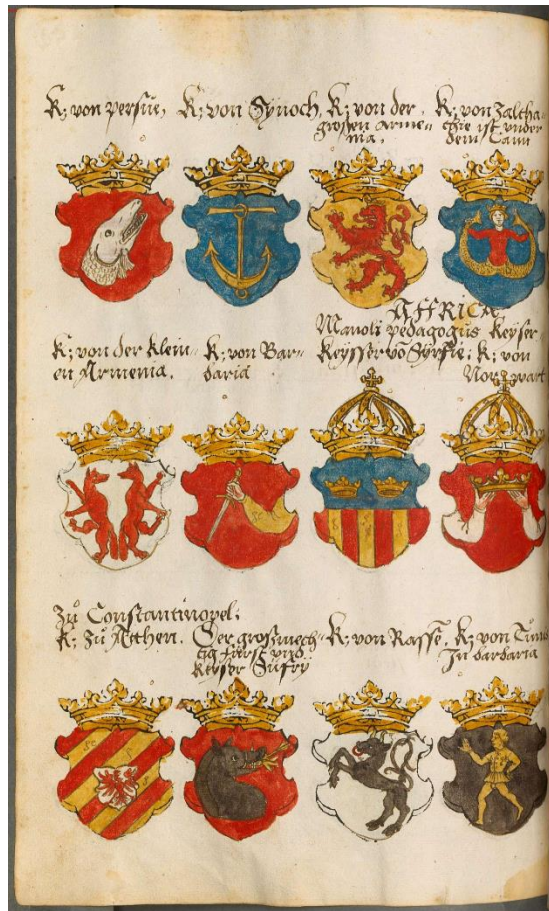 K: von persüe,
K: von Synoch,
K: von der
großen arme-
nia,
K: von
chie ist vnder
dem Cann
K: von der klein-
en Armenia.
K: von Bar-
baria
AFFRICA
Manoli pedagogus Keyser
Keysser vo Syrsie: K: von
Zů Constantinopel:
K: zů Atthen.
Der großmech-
tig fürst vnd
Keyser Sufry
K: von Rasse,
K: von
In barbaria